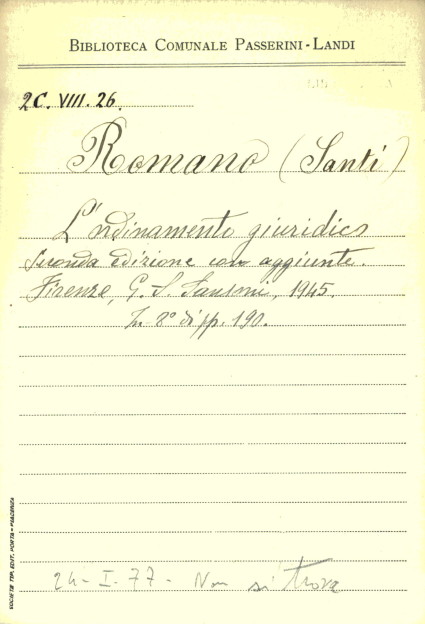 BIBLIOTECA COMUNALE PASSERINI-LANDI
2C. VIII. 26.
Romano (Santi)
L'ordinamento giuridico
Seconda edizione con aggiunte.
Firenze, G. S. Sansoni, 1945.
8° di pp. 190.
24-I-77- Non si trova
SOCIETÀ TIP. EDIT. PORTA - PIACENZA